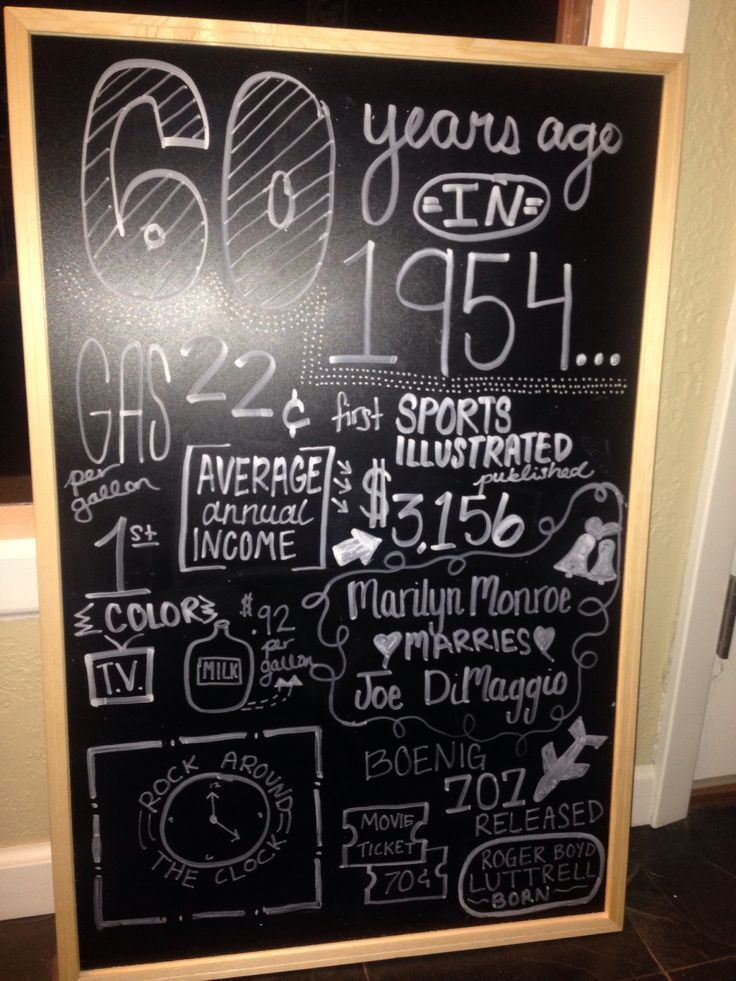 60 years ago
=IN=
1954...
GAS 22¢
per
gallon
first SPORTS
ILLUSTRATED
published
AVERAGE
annual
INCOME
$3,156
1st
COLOR
T.V.
MILK
$.92
per
gallon
Marilyn Monroe
MARRIES
Joe DiMaggio
ROCK AROUND
THE CLOCK
BOENIG
707
RELEASED
MOVIE
TICKET
70¢
ROGER BOYD
LUTTRELL
~BORN~